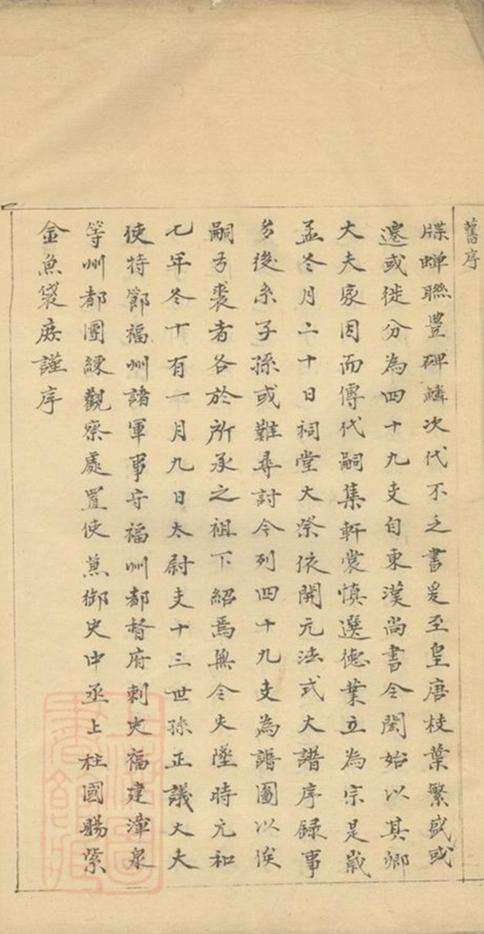 舊序
牒蟬聯豊碑鱗次代不乏書爰至皇唐枝葉繁盛或
遷或徙分為四十九支自東漢尚書令閎始以其卿
大夫家因而傳代嗣集軒裳慎選德業立為宗是歲
孟冬月二十日祠堂大祭依開元法式大譜序錄事
多後系子孫或難尋討今列四十九支為譜圖以俟
嗣弓裘者各於所承之祖下紹焉無令失墜時元和
七年冬十有一月九日太尉支十三世孫正議大夫
使持節福州諸軍事守福州都督府刺史福建漳泉
等州都團練觀察處置使兼御史中丞上柱國賜紫
金魚袋庭謹序